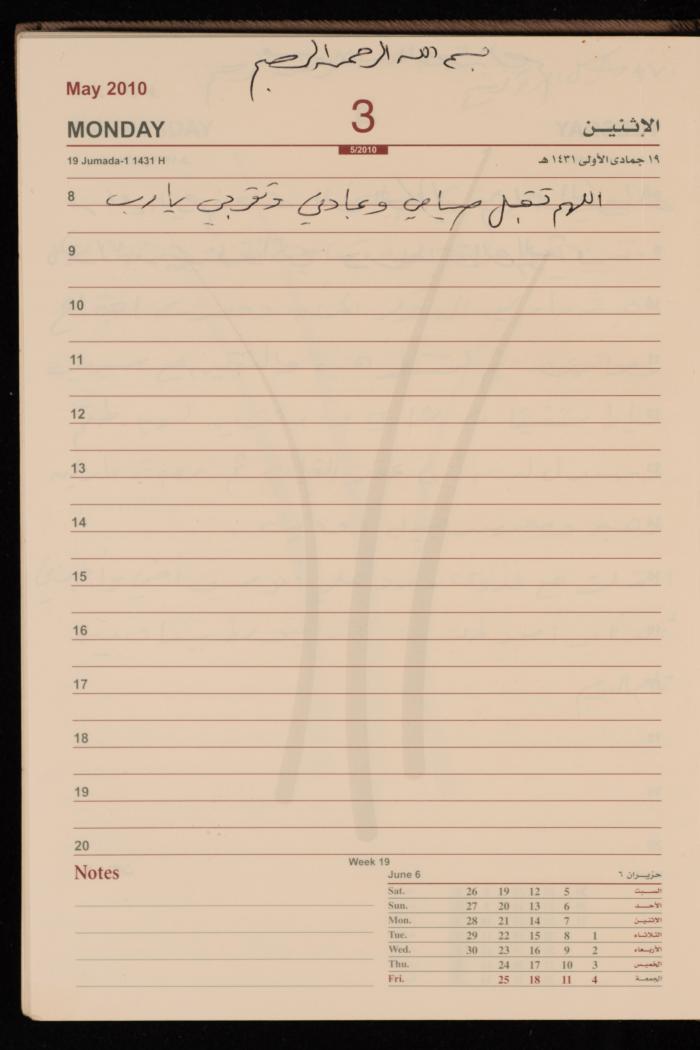 بسم الله الرحمن الرحيم
May 2010
3
MONDAY
الإثنين
5/2010
19 Jumada-1 1431 H
١٩ جمادى الأولى ١٤٣١ هـ
8 اللهم تقبل صيامي وعبادتي وتقربي يا رب
9
10
11
12
13
14
15
16
17
18
19
20
Week 19
Notes
June 6 حزيـــران ٦
Sat. 26 19 12 5 الســبت
Sun. 27 20 13 6 الأحــد
Mon. 28 21 14 7 الاثنيـن
Tue. 29 22 15 8 1 الثلاثـاء
Wed. 30 23 16 9 2 الأربعـاء
Thu. 24 17 10 3 الخميس
Fri. 25 18 11 4 الجمعــة